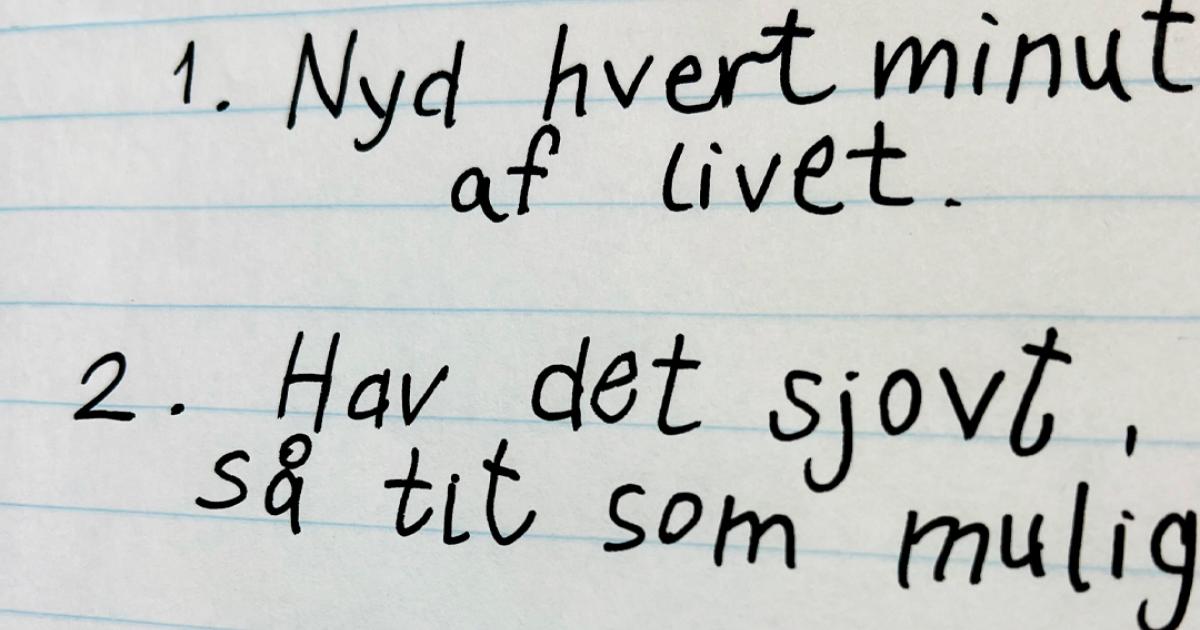 1. Nyd hvert minut
af livet.
2. Hav det sjovt,
så tit som mulig